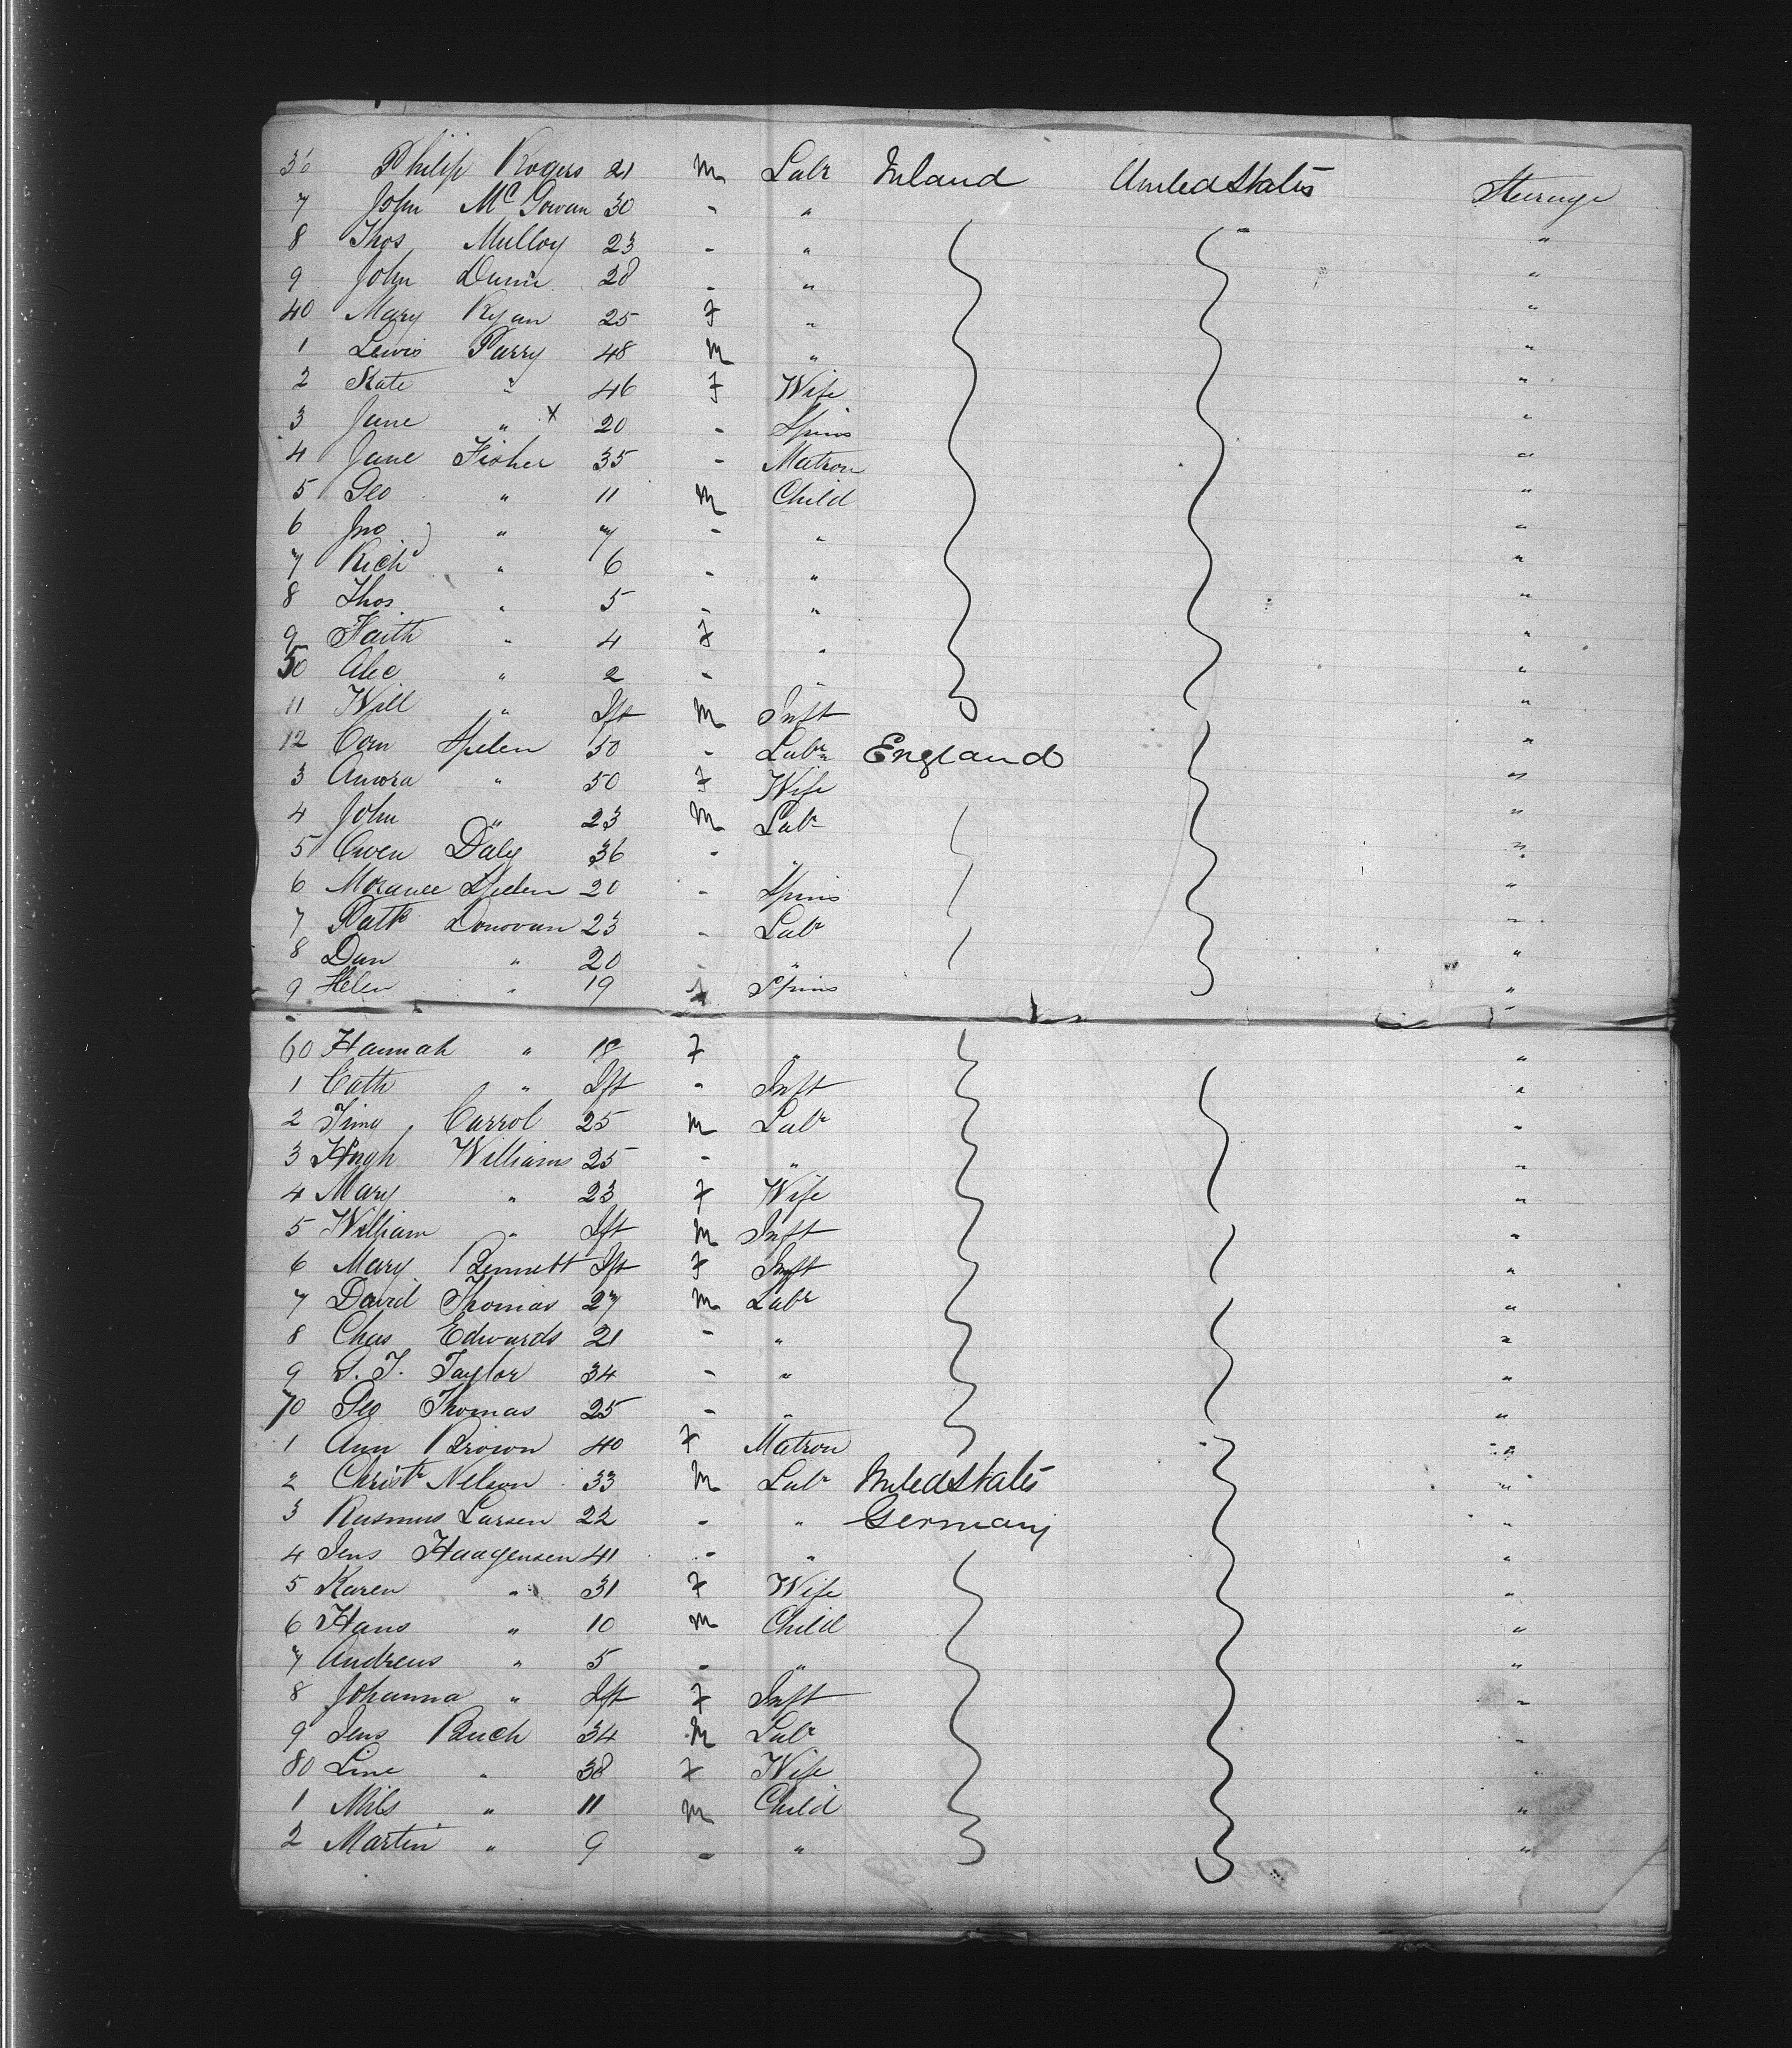 36 Philip Rogers 21 m Labr Ireland United States Steerage
7 John McGowan 30 - "
8 Thos Mulloy 23 - " "
9 John Dunn 28 - " "
40 Mary Ryan 25 F " "
1 Lewis Parry 48 M " "
2 Kate " 46 F Wife "
3 Jane " x 20 - Spins "
4 Jane Fisher 35 - Matron "
5 Geo " 11 M Child "
6 Jno " 7 - " "
7 Richd " 6 - " "
8 Thos " 5 - " "
9 Faith " 4 F " "
50 Alic " 2 - " "
11 Will " Ift M Inft "
12 Corn 50 - Labr England "
3 " 50 F Wife "
4 John " 23 M Labr "
5 Owen Daly 36 - " "
6 20 - Spins "
7 Patk Donovan 23 - Labr "
8 Dan " 20 - " "
9 Helen " 19 F Spins "
60 Hannah " 18 F " "
1 Cath " Ift - Inft "
2 Timy Carrol 25 M Labr "
3 Hugh Williams 25 - " "
4 Mary " 23 F Wife "
5 William " Ift M Inft "
6 Mary Bennett Ift F Inft "
7 David Thomas 27 M Labr "
8 Chas Edwards 21 - " "
9 S. T. Taylor 34 - " "
70 Geo Thomas 25 - " "
1 Ann Brown 40 F Matron "
2 Christr Nelson 33 M Labr United States "
3 Rasmus Larsen 22 - " Germany "
4 Jens Haagensen 41 - " "
5 Karen " 31 F Wife "
6 Hans " 10 M Child "
7 Andreus " 5 - " "
8 Johanna " Ift F Inft "
9 Jens Buch 34 M Labr "
80 Line " 38 F Wife "
1 Nils " 11 M Child "
2 Martin " 9 - " "